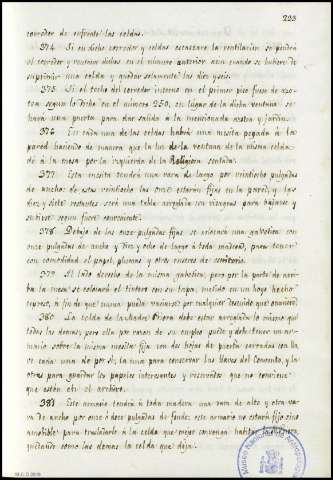 223
corredor de enfrente las celdas.
374. Si en dicho corredor y celdas escaseare la ventilacion se pondrá
el corredor y ventana dichos en el numero anterior aun cuando se hubiere de
suprimir una celda y quedar solamente las diez y seis.
375. Si el techo del corredor interno en el primer piso fuese de azo-
tea segun lo dicho en el numero 250, en lugar de la dicha ventana se
hará una puerta para dar salida á la mencionada azotea y jardin.
376. En cada una de las celdas habrá una mesita pegada á la
pared haciendo de manera que la luz de la ventana de la misma celda
dé á la mesa por la izquierda de la Religiosa sentada.
377. Esta mesita tendrá una vara de largo por veintiocho pulgadas
de ancho: de estas veintiocho las once estarán fijas en la pared, y las
diez y siete restantes será una tabla arreglada con visagras para bajarse y
subirse segun fuere conveniente.
378. Debajo de las once pulgadas fijas se colocará una gabetica con
once pulgadas de ancho y diez y ocho de largo á toda madera, para tener
con comodidad el papel, plumas y otros enseres de escritorio.
379. Al lado derecho de la misma gabetica, pero por la parte de arri-
ba la mesa se colocará el tintero con su tapa, metido en un hoyo hecho
espreso, á fin de que nunca pueda vaciarse por cualquier descuido que ocurriere.
380. La celda de la Madre Priora debe estar arreglada lo mismo que
todas las demas; pero ella por razon de su empleo puede y debe tener un ar-
mario sobre la misma mesita fija con dos hojas de puerta cerradas con lla-
ve cada una de por sí; la una para conservar las llaves del Convento, y la
otra para guardar los papeles interesantes y reservados que no conviene
que estén en el archivo.
381. Este armario tendrá á toda madera una vara de alto y otra va-
ra de ancho por once ó doce pulgadas de fondo: este armario no estará fijo sino
amovible para trasladarlo á la celda que mejor convenga habitar la Priora,
quedando como las demas la celda que deja.
Museo Nacional de Antropología